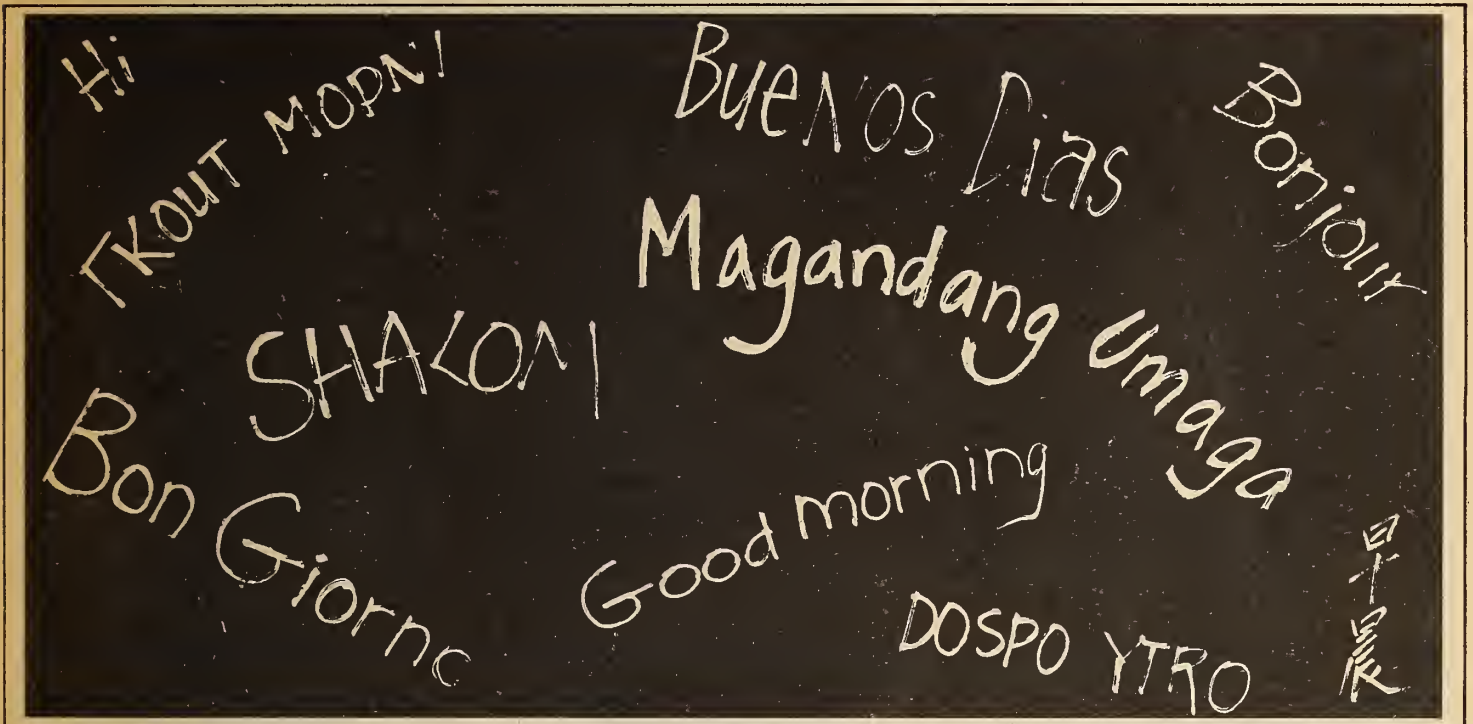 Hi
ΓΚΟUT ΜΟΡΝΙ
Buenos Dias
Bonjour
Magandang Umaga
SHALOM
Bon Giorno
Good morning
DOSPO YTRO
早晨